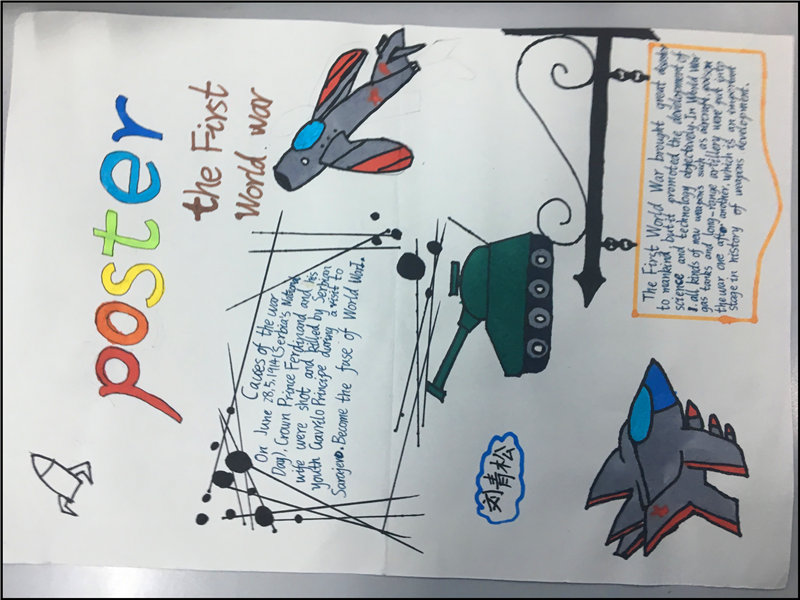 poster
the First
World war
Causes of the war
On June 28,3,1914(Serbia's National
Day), Crown Prince Ferdinand and his
wife were shot and killed by Serbian
Youth Gavrilo Principe during a visit to
Sarajevo. Become the fuse of World War I.
刘青松
The First World War brought great disaster
to mankind, but it promoted the development of
science and technology objectively. In World War
I, all kinds of new weapons such as aircraft, poison
gas tanks and long-range artillery were put into
the war one after another, which is an important
stage in history of weapons development.